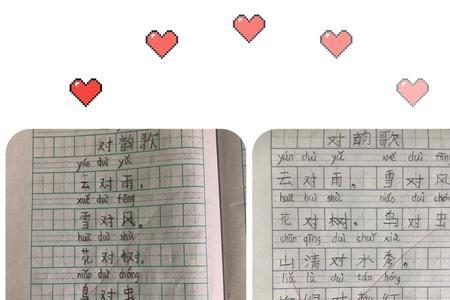 对韵歌
yún duì yǔ
云对雨，
xuě duì fēng
雪对风。
huā duì shù
花对树。
niǎo duì chóng
鸟对虫
对韵歌
yún duì yǔ xuě duì fēng
云对雨，雪对风
huā duì shù niǎo duì chóng
花对树。鸟对虫
shān qīng duì shuǐ xiù
山清对水秀，
liǔ lǜ duì táo hóng